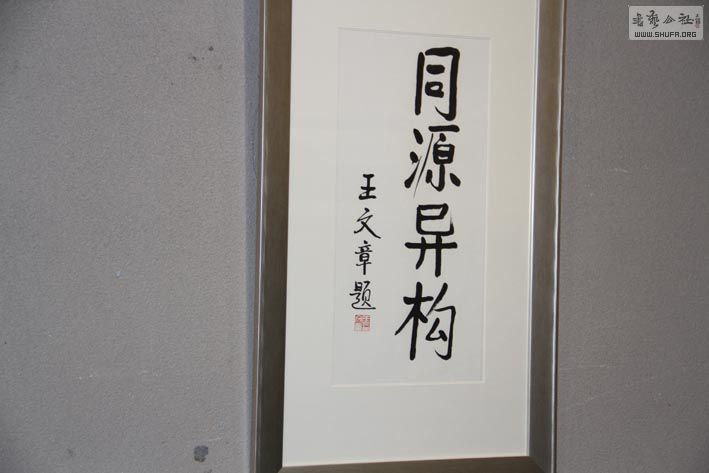 同源异构
王文章题
书艺公社
WWW.SHUFA.ORG